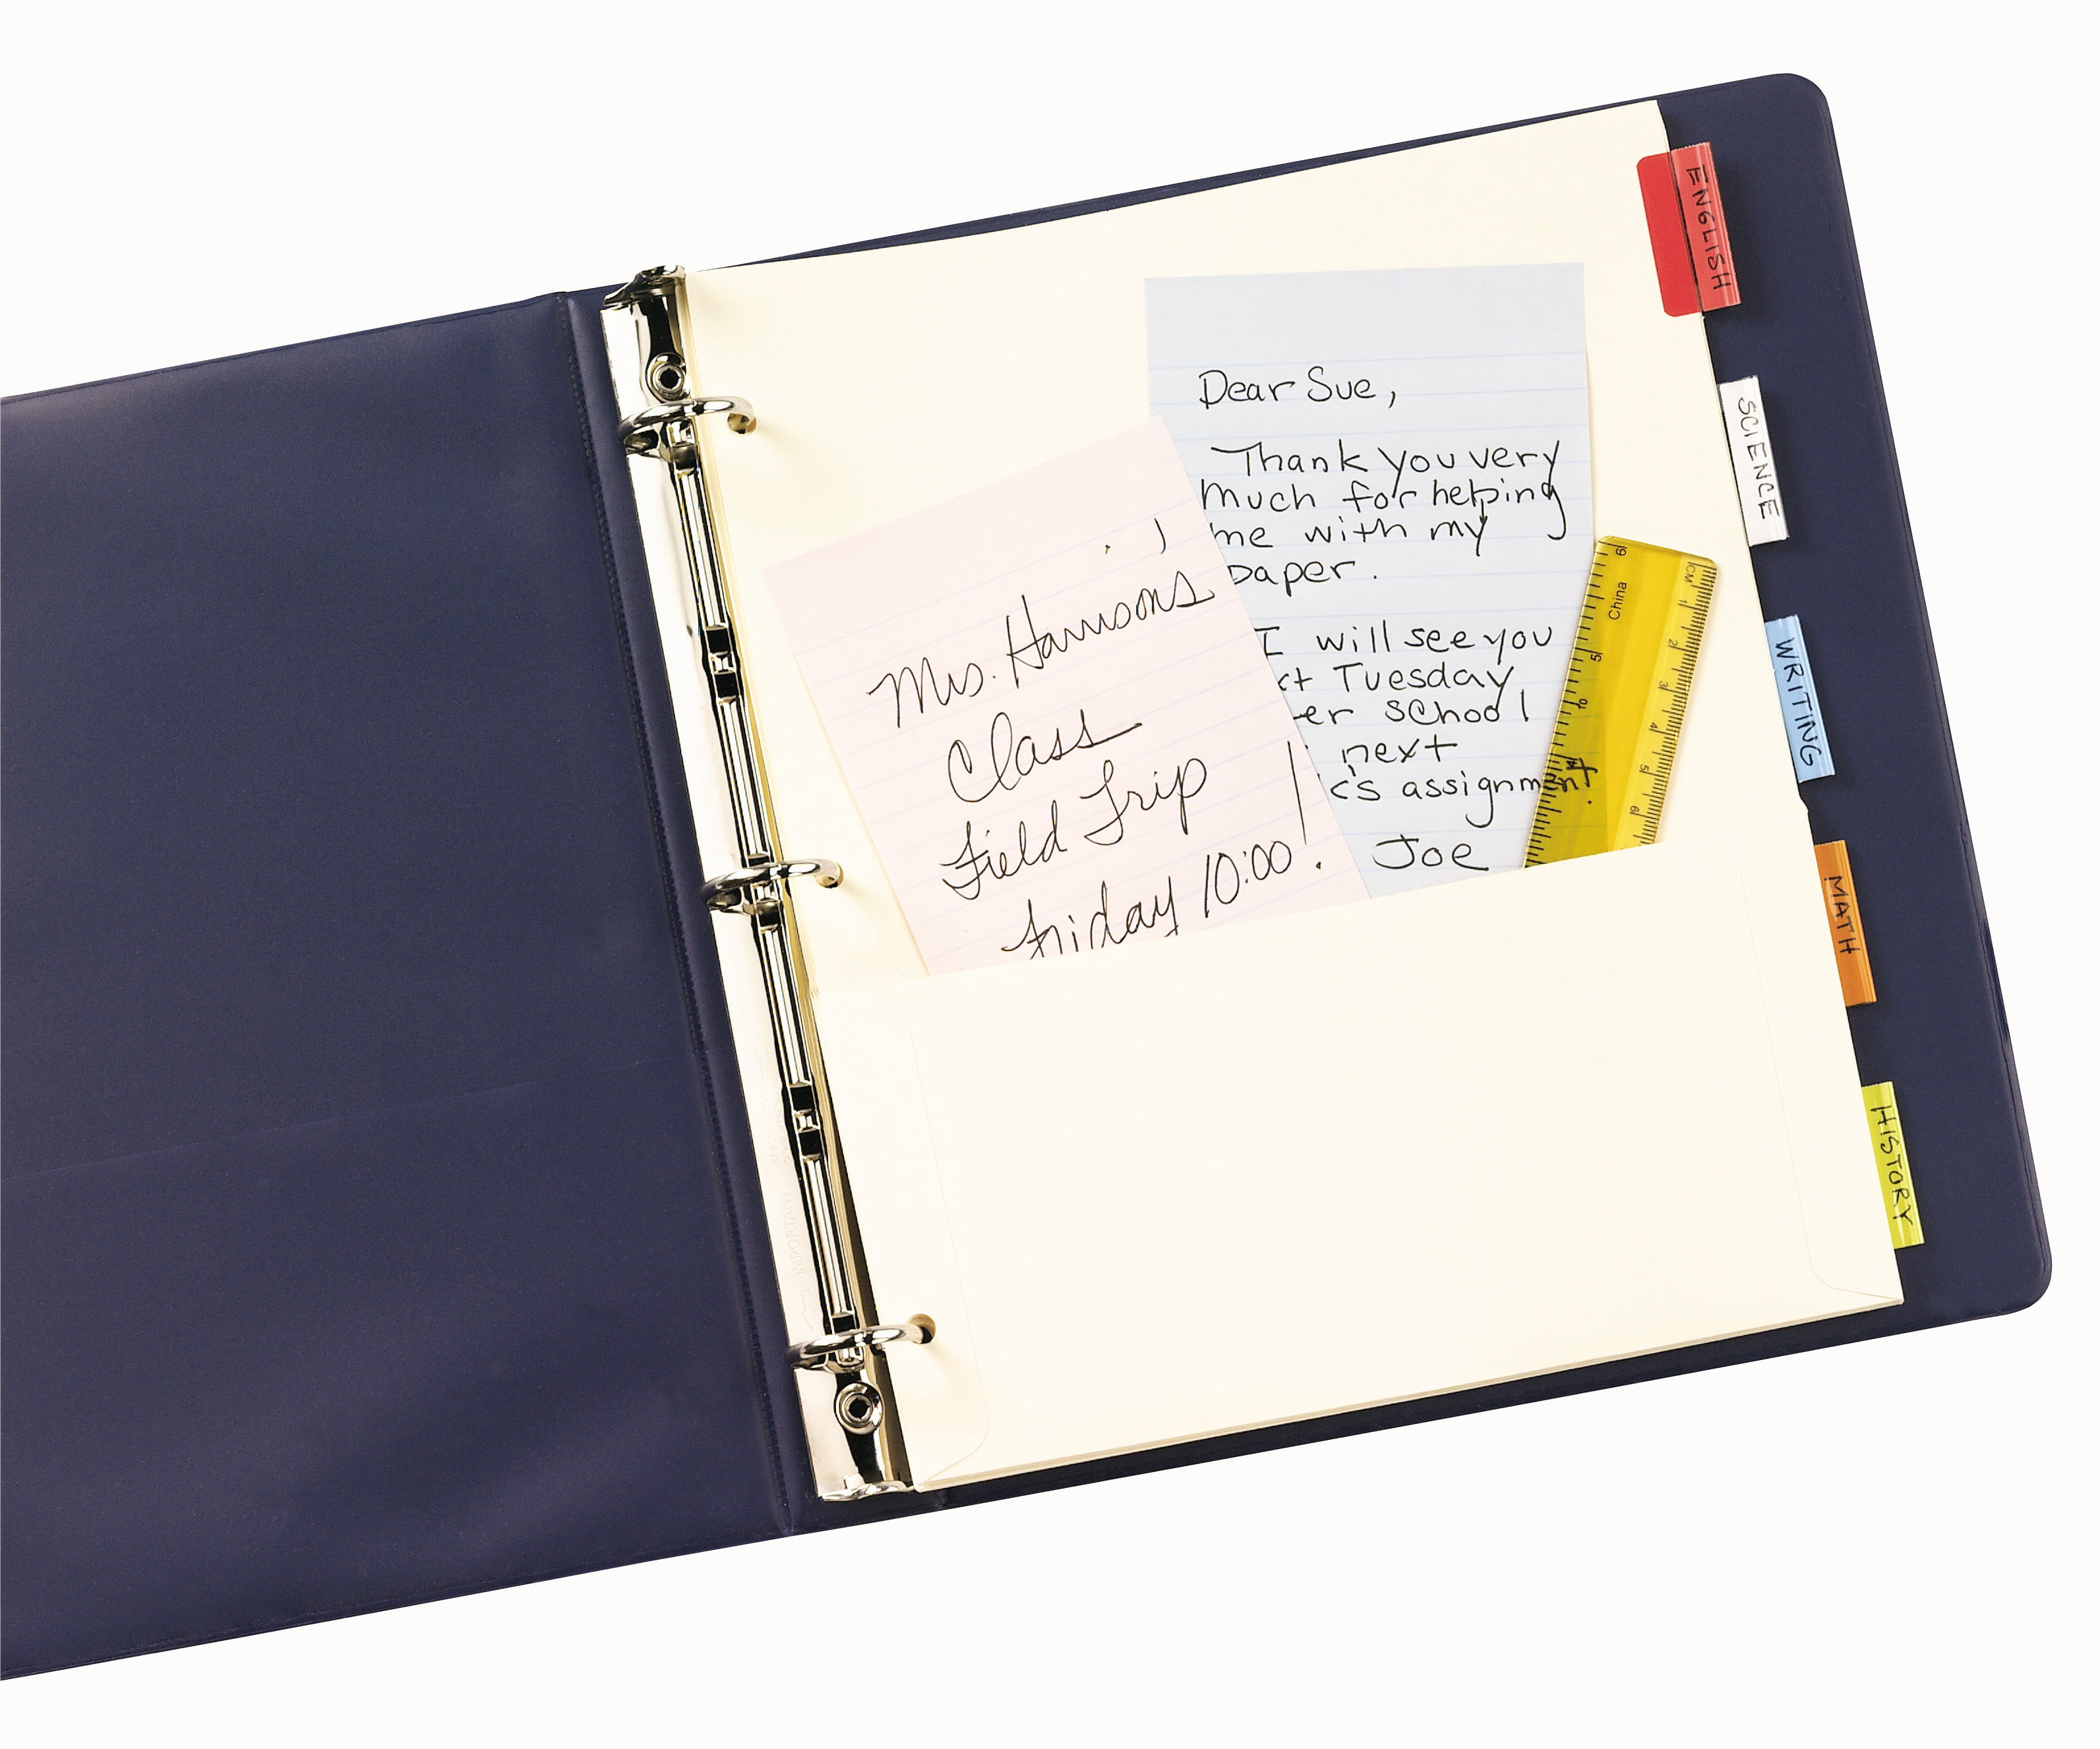 Dear Sue,
Thank you very
much for helping
me with my
paper.
I will see you
Tuesday
school
next
assignment.
Joe
Mrs. Harrison's
Class
Field Trip
Friday 10:00!
ENGLISH
SCIENCE
WRITING
MATH
HISTORY
China
CM 1 2 3 4 5 6
6 5 4